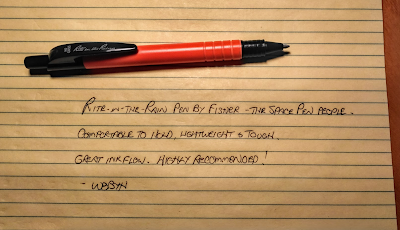 Rite in the Rain
RITE-IN-THE-RAIN PEN BY FISHER - THE SPACE PEN PEOPLE.
COMFORTABLE TO HOLD, LIGHTWEIGHT & TOUGH.
GREAT INK FLOW. HIGHLY RECOMMENDED!
- WB3BYN